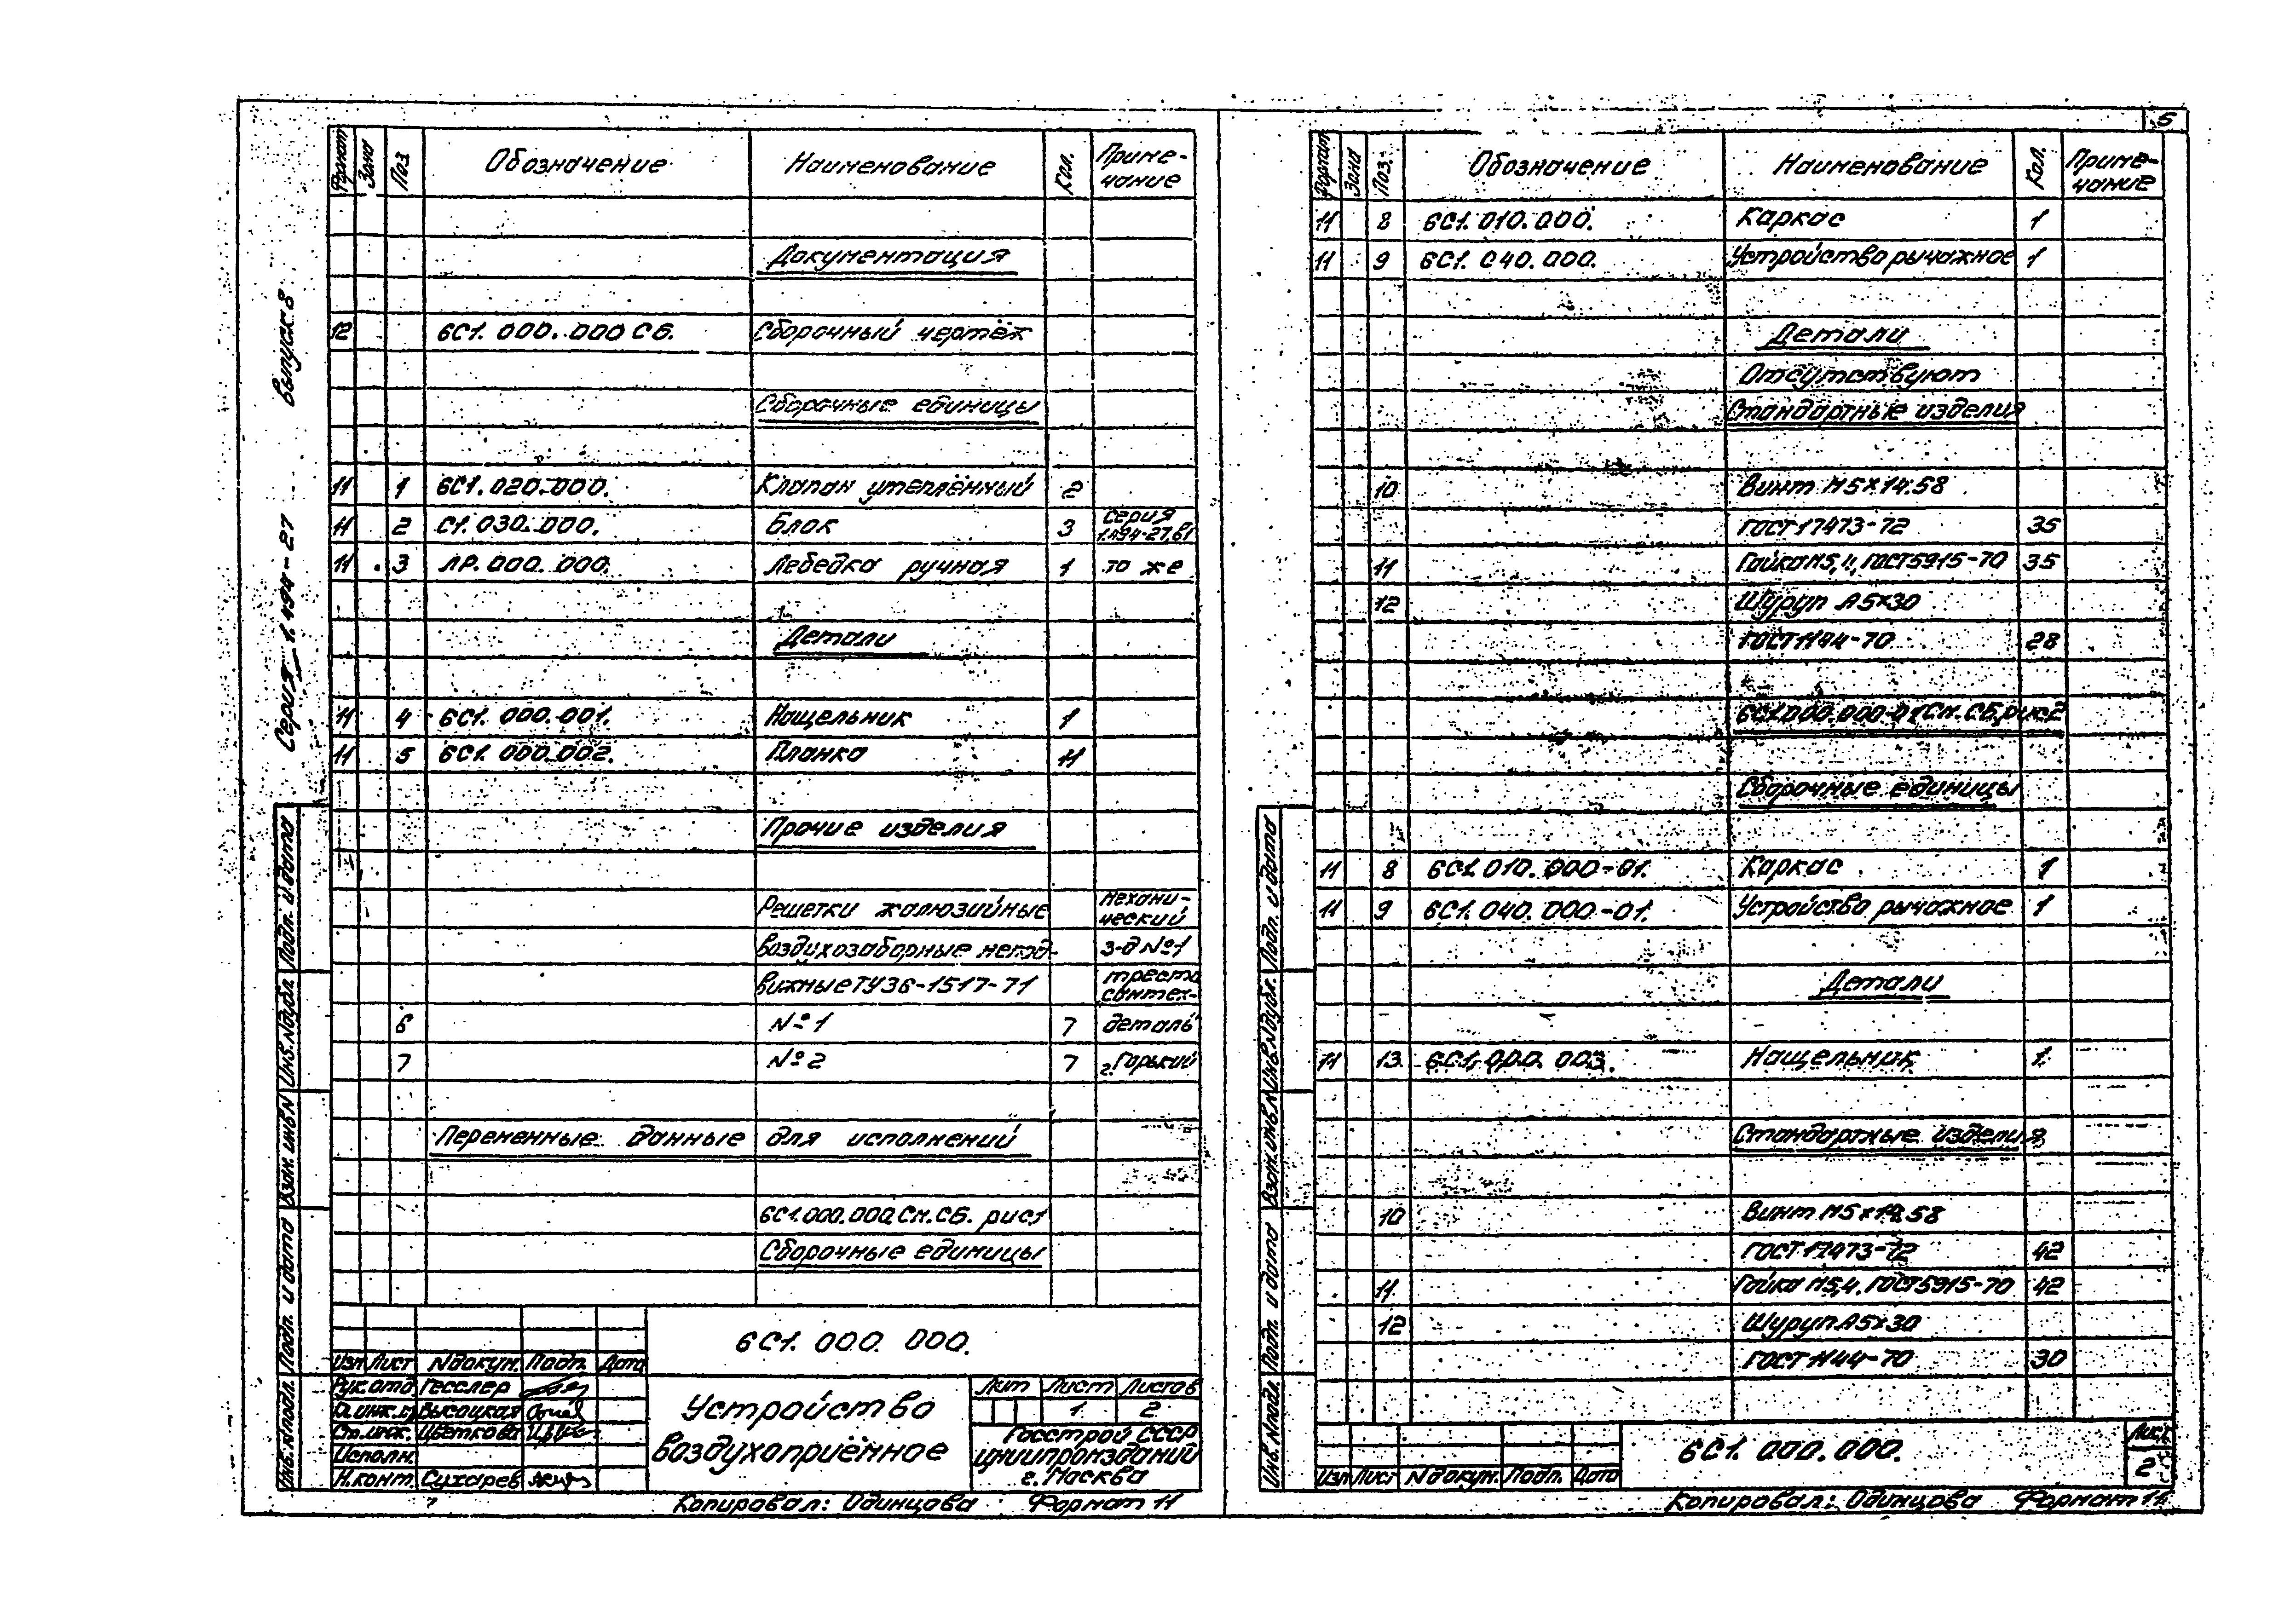 5
Серия 1.494-27 выпуск 8
Формат Зона Поз Обозначение Наименование Кол. Приме-
чание
Документация
12 6С1. 000. 000 СБ. Сборочный чертёж
Сборочные единицы
11 1 6С1. 020. 000. Клапан утеплённый 2
11 2 С1. 030. 000. Блок 3 серия
1.494-27.в1
11 3 ЛР. 000. 000. Лебедка ручная 1 то же
Детали
11 4 6С1. 000. 001. Нащельник 1
11 5 6С1. 000. 002. Планка 11
Прочие изделия
Решетки жалюзийные механи-
ческий
воздухозаборные непод- з-д №1
вижные ТУ36-1517-71 треста
сантех-
6 №1 7 деталь
7 №2 7 г.Горький
Переменные данные для исполнений
6С1.000.000 См. СБ. рис1
Сборочные единицы
6С1. 000. 000.
Изм Лист № докум. Подп. Дата
Рук.отд Гесслер
Гл.инж.п Высоцкая
Ст.инж. Цветкова
Исполн.
Н.конт. Сухарев
Устройство
воздухоприёмное
Лит Лист Листов
1 2
Госстрой СССР
ЦНИИпромзданий
г. Москва
Инв.№подл. Подп. и дата Взам. инв№ Инв.№дубл. Подп. и дата
Копировал: Одинцова Формат 11
Формат Зона Поз. Обозначение Наименование Кол. Приме-
чание
11 8 6С1. 010. 000. Каркас 1
11 9 6С1. 040. 000. Устройство рычажное 1
Детали
Отсутствуют
Стандартные изделия
10 Винт М5×14.58
ГОСТ 17473-72 35
11 Гайка М5,4, ГОСТ5915-70 35
12 Шуруп А5×30
ГОСТ 1144-70 28
6С1.000.000-01 См. СБ, рис2
Сборочные единицы
11 8 6С1. 010. 000-01. Каркас 1
11 9 6С1. 040. 000-01. Устройство рычажное 1
Детали
11 13 6С1. 000. 003. Нащельник 1
Стандартные изделия
10 Винт М5×14.58
ГОСТ 17473-72 42
11 Гайка М5,4. ГОСТ5915-70 42
12 Шуруп А5×30
ГОСТ 1144-70 30
6С1. 000. 000.
Лист
2
Изм Лист № докум. Подп. Дата
Инв.№подл. Подп. и дата Взам. инв№ Инв.№дубл. Подп. и дата
Копировал: Одинцова Формат 11